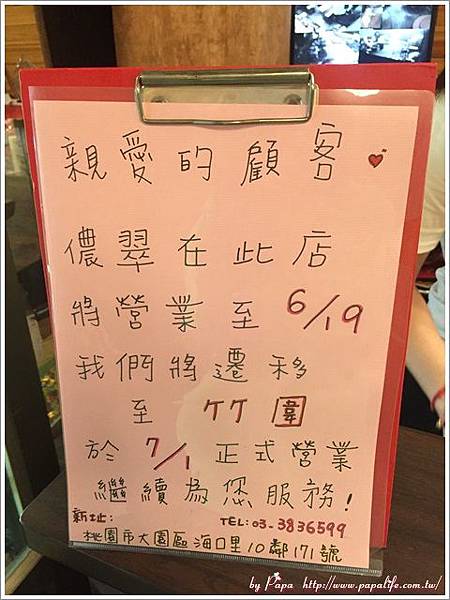 親愛的顧客
儂翠在此店
將營業至 6/19
我們將遷移
至 竹圍
於 7/1 正式營業
繼續為您服務!
新址: TEL:03-3836599
桃園市大園區海口里10鄰171號
by Papa http://www.papalife.com.tw/